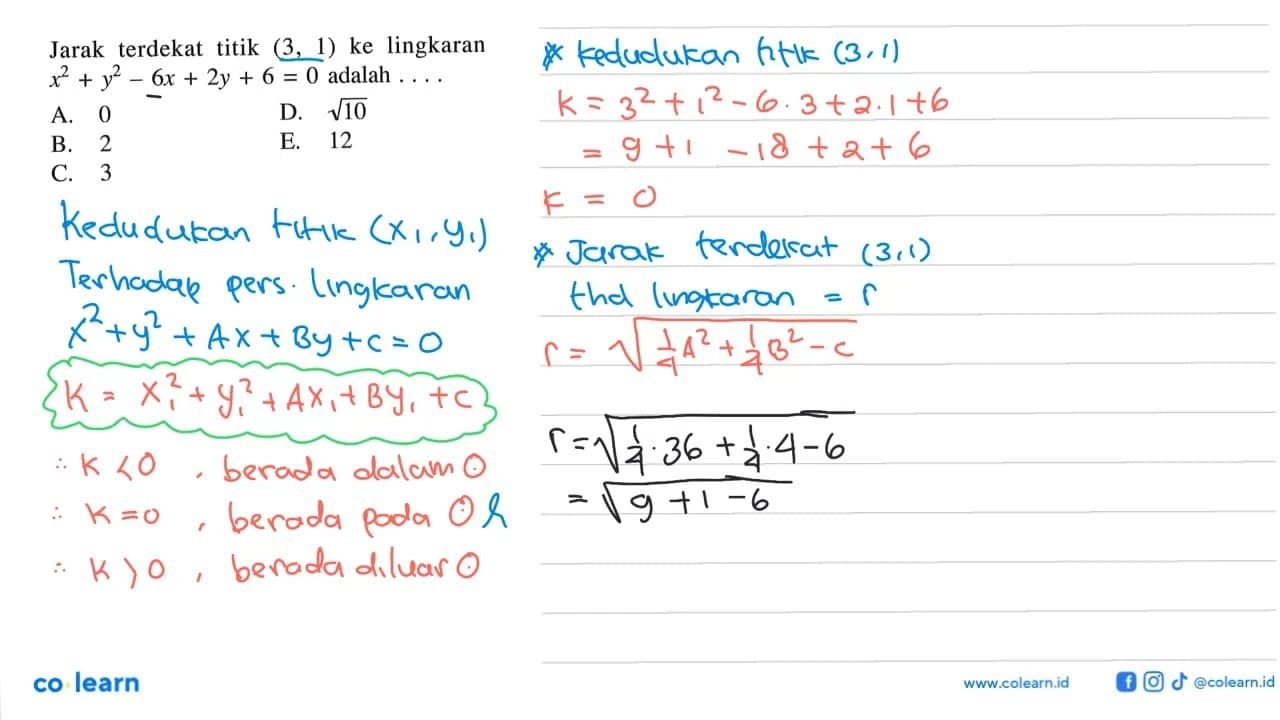 Jarak terdekat titik (3, 1) ke lingkaran
x² + y² − 6x + 2y + 6 = 0 adalah . . . .
A. 0 D. √10
B. 2 E. 12
C. 3
Kedudukan titik (x₁, y₁)
Terhadap pers. lingkaran
x² + y² + Ax + By + c = 0
K = x₁² + y₁² + Ax₁ + By₁ + c
∴ K < 0 , berada dalam ⊙
∴ K = 0 , berada pada ⊙
∴ K > 0 , berada diluar ⊙
* Kedudukan titik (3,1)
K = 3² + 1² − 6·3 + 2·1 + 6
= 9 + 1 − 18 + 2 + 6
K = 0
* Jarak terdekat (3,1)
thd lingkaran = r
r = √(¼A² + ¼B² − c)
r = √(¼·36 + ¼·4 − 6)
= √(9 + 1 − 6)
co learn
www.colearn.id
@colearn.id